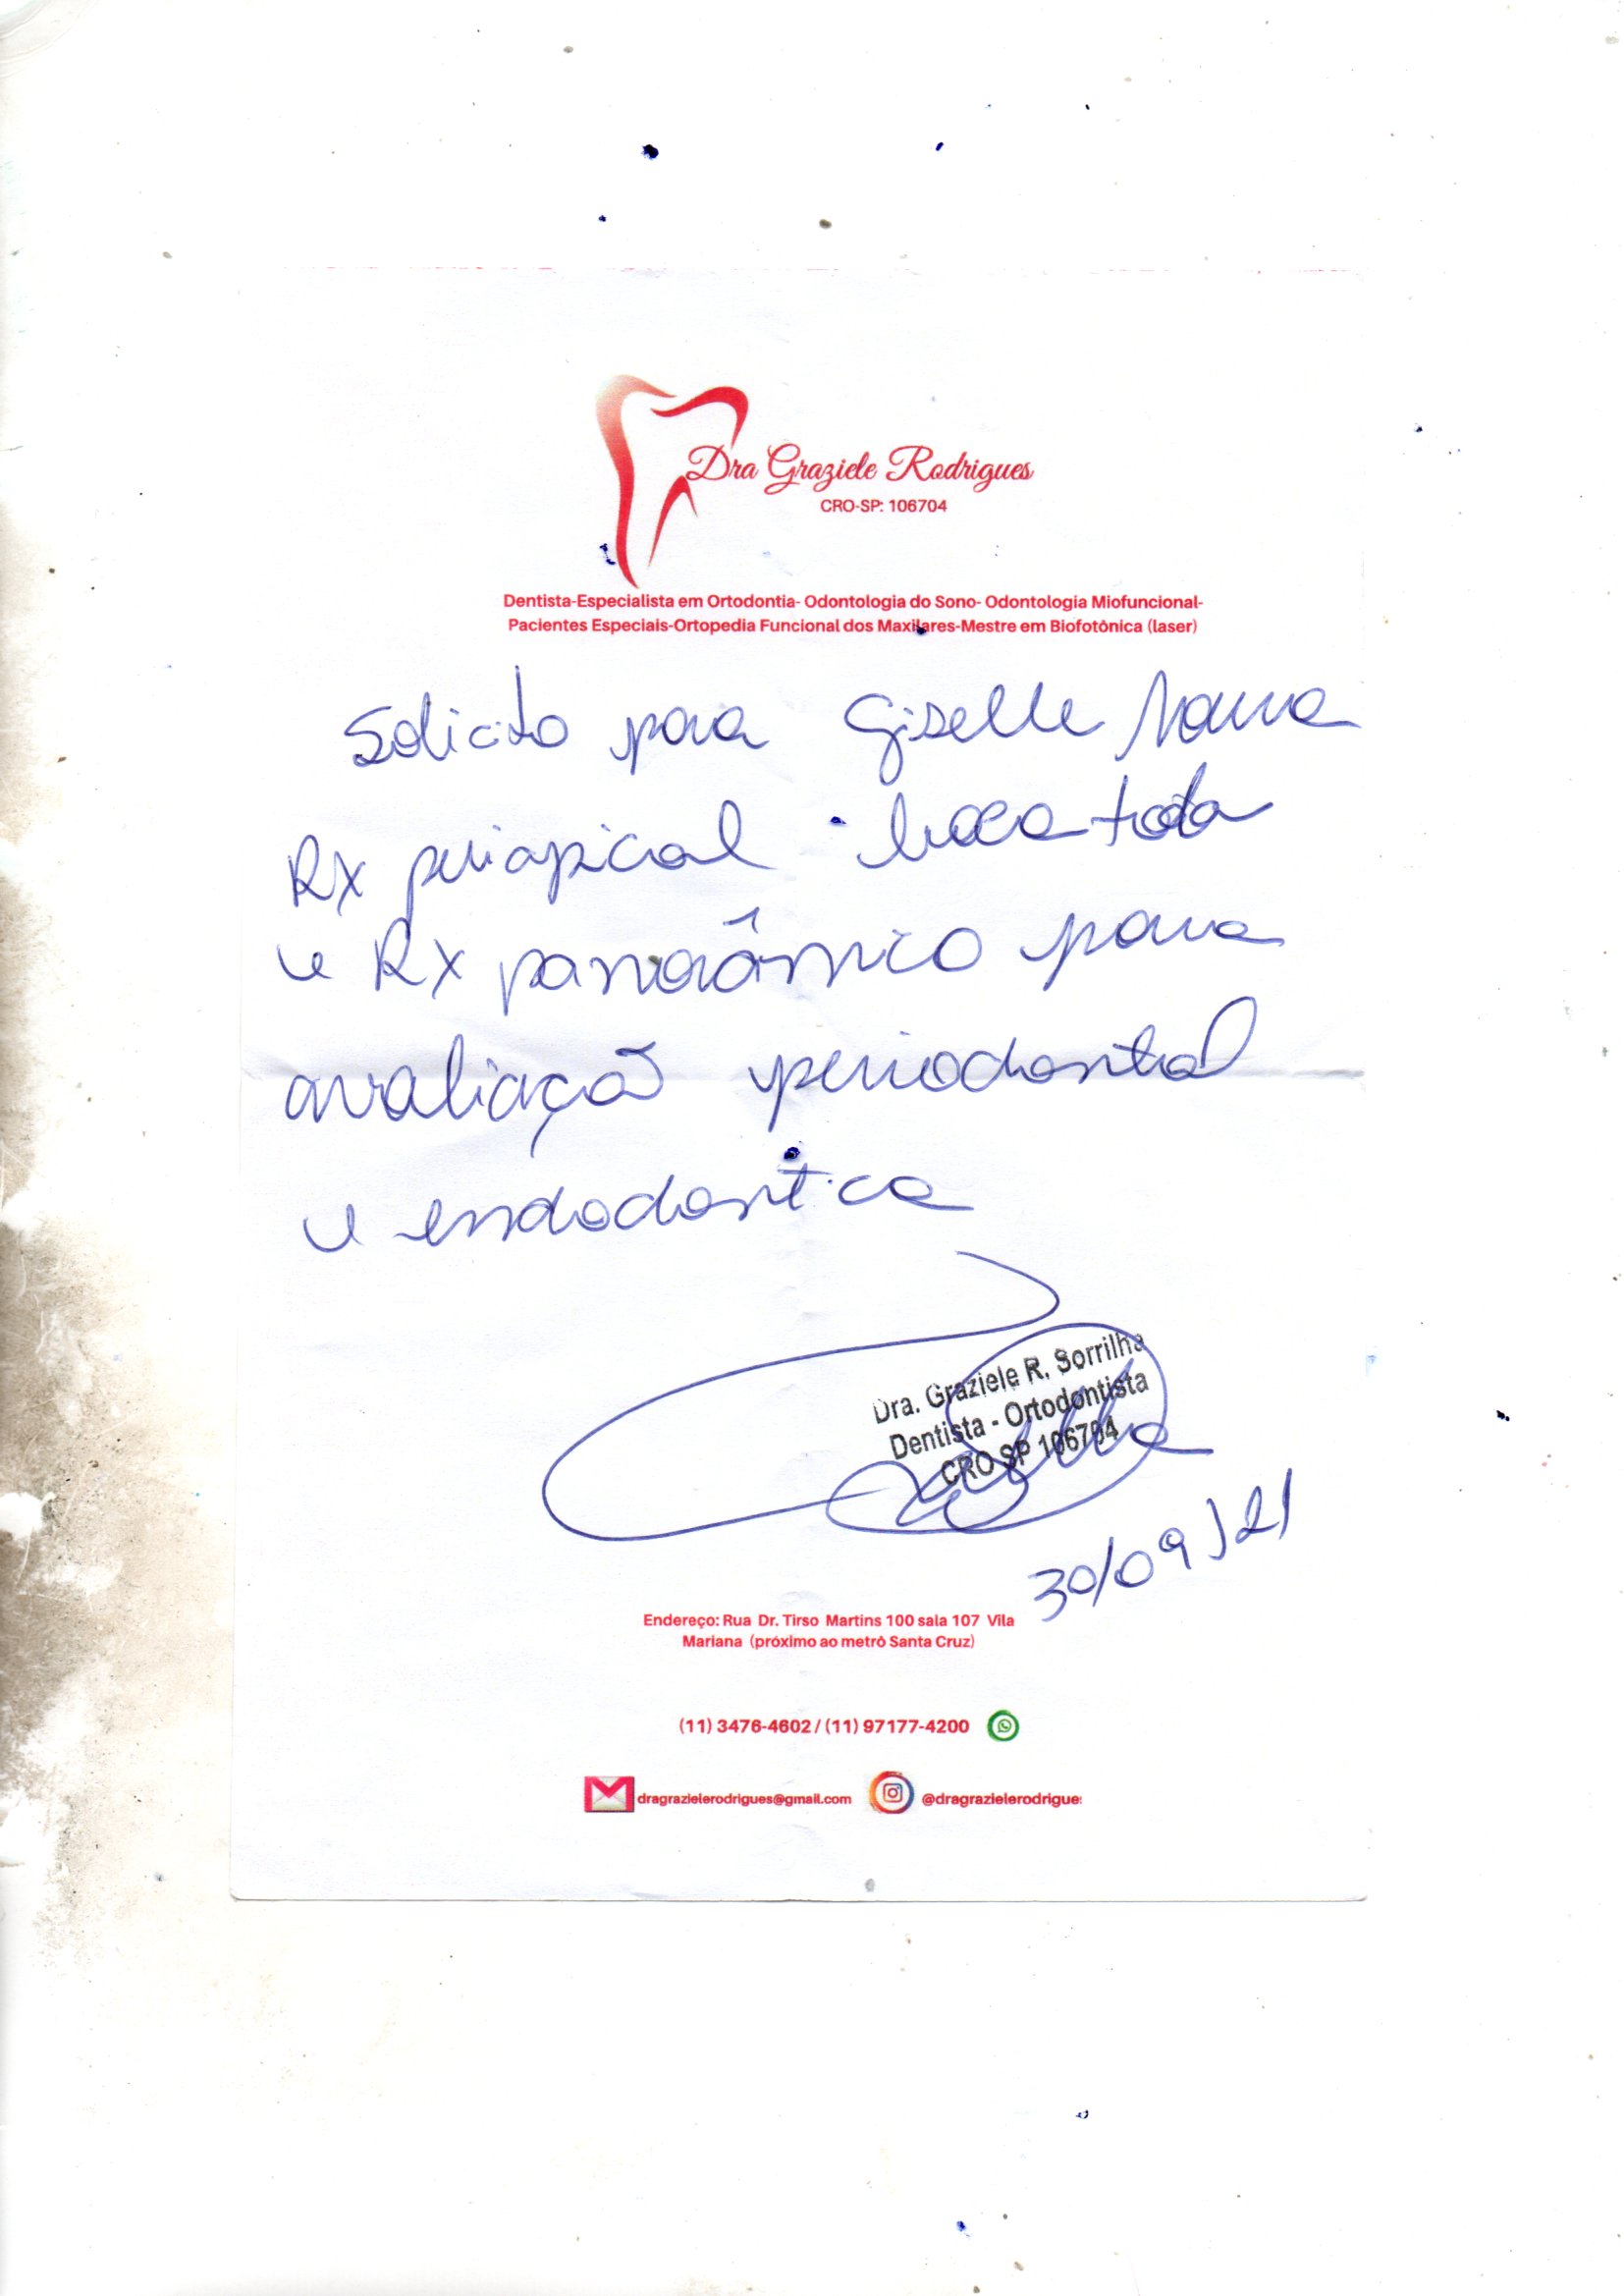 Dra Graziele Rodrigues
CRO-SP: 106704
Dentista-Especialista em Ortodontia- Odontologia do Sono- Odontologia Miofuncional-
Pacientes Especiais-Ortopedia Funcional dos Maxilares-Mestre em Biofotônica (laser)
Solicito para Giselle
Rx periapical boca toda
e Rx panorâmico para
avaliação periodontal
e endodontica
Dra. Graziele R. Sorrilha
Dentista - Ortodontista
CRO SP 106704
30/09/21
Endereço: Rua Dr. Tirso Martins 100 sala 107 Vila
Mariana (próximo ao metrô Santa Cruz)
(11) 3476-4602 / (11) 97177-4200
dragrazielerodrigues@gmail.com @dragrazielerodrigue